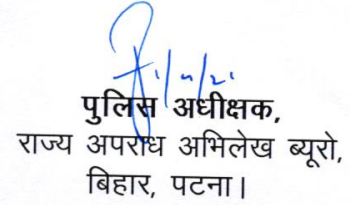 पुलिस अधीक्षक,
राज्य अपराध अभिलेख ब्यूरो,
बिहार, पटना।